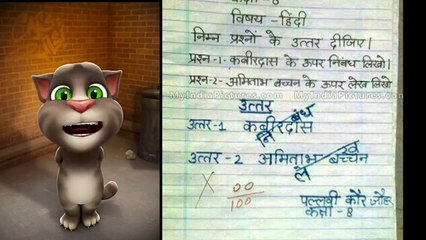 विषय -हिंदी
निम्न प्रश्नों के उत्तर दीजिए।
प्रश्न -1- कबीरदास के ऊपर निबंध लिखो।
प्रश्न-2- अमिताभ बच्चन के ऊपर लेख लिखो
MyIndiaPictures.com MyIndiaPictures.com
उत्तर
बंध
उत्तर-1 कबीरदास
नि
ख
उत्तर - 2 अमिताभ बच्चन
ले
X 00
100
पल्लवी कौर जौहर
कक्षा - 8